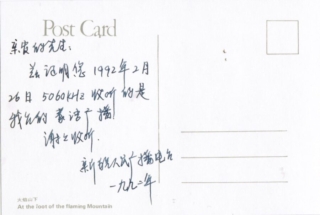 Post Card
亲爱的先生:
兹证明您1992年2月
26日5060KHz收听的是
我台的蒙语广播
谢谢收听.
新疆人民广播电台
一九九二年
火焰山下
At the foot of the Flaming Mountain